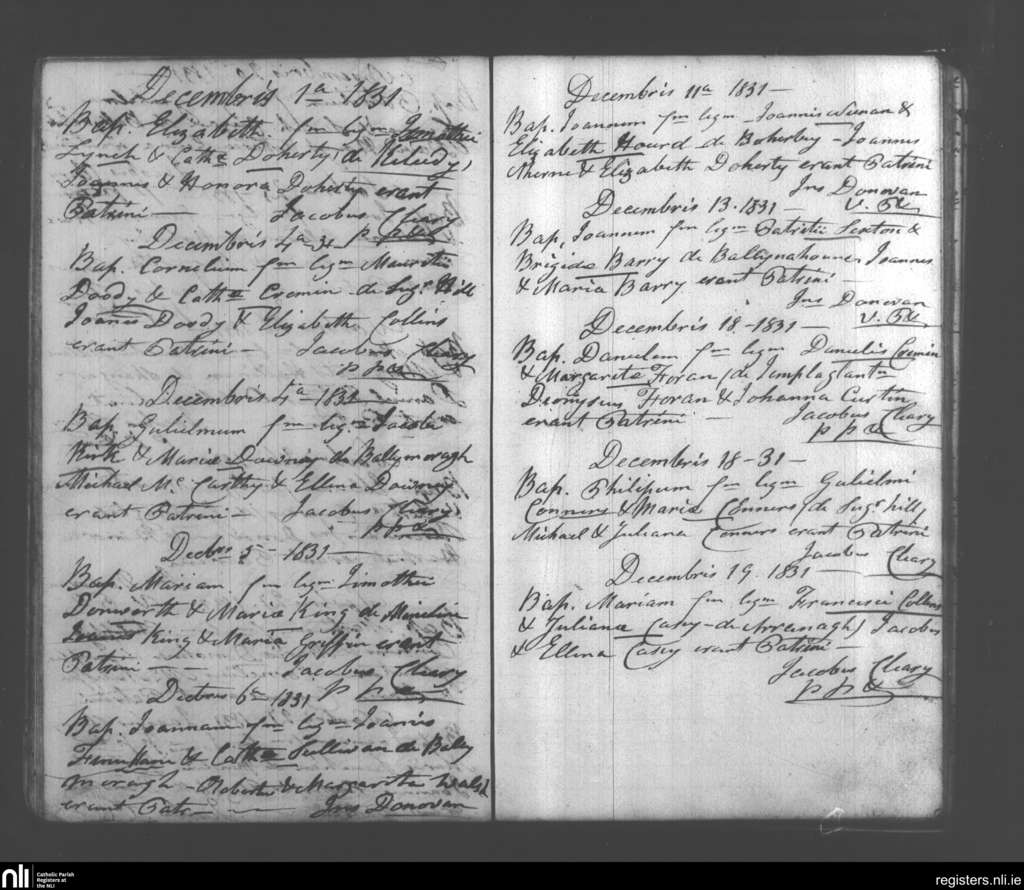 Decembris 1a 1831
Bap. Elizabeth fm legm Timothei
Lynch & Cathe Doherty (de Keludy,
Joannes & Honora Doherty erant
Patrini — Jacobus Cleary
Decembris 4a 31 P. P. &c
Bap. Cornelium fm legm Mauritii
Doody & Cathe Cremin de Sugr Hill
Joannes Doody & Elizabeth Collins
erant Patrini — Jacobus Cleary
P P &c
Decembris 4a 1831
Bap. Gulielmum fm legm Jacobi
Kirk & Maria Downey de Ballymoragh
Michael Mc Carthy & Ellena Downey
erant Patrini — Jacobus Cleary
P P &c
Decbris 5 - 1831 —
Bap. Mariam fm legm Timothei
Donworth & Maria King de
King & Maria Griffin erant
Patrini — Jacobus Cleary
Decbris 6a 1831 P P &c
Bap. Joannam fm legm Joannis
& Cathe Sullivan de Bally
moragh - Robertus & Margarita Walsh
erant Patr — Jns Donovan
Decembris 11a 1831 —
Bap. Joannem fm legm Joannis &
Elizabeth Hourd de Boherbuy - Joannes
Aherne & Elizabeth Doherty erant Patrini
Jns Donovan
Decembris 13. 1831 — V. P &c
Bap. Joannem fm legm Patritii Sexton &
Brigida Barry de Ballynahoune Joannes
& Maria Barry erant Patrini —
Jns Donovan
Decembris 18 - 1831 — V. P &c
Bap. Danielem fm legm Danielis Cremin
& Margarita Foran (de Templeglantn
Dionysius Foran & Johanna Curtin
erant Patrini — Jacobus Cleary
P P &c
Decembris 18 - 31 —
Bap. Philipum fm legm Gulielmi
Connors & Maria Connors (de Sugr hill,
Michael & Juliana Connors erant Patrini
Jacobus Cleary
Decembris 19. 1831 —
Bap. Mariam fm legm Francisci Collins
& Juliana Casey - de Arrenagh) Jacobus
& Ellena Casey erant Patrini —
Jacobus Cleary
P P &c
nli Catholic Parish
Registers at
the NLI
registers.nli.ie